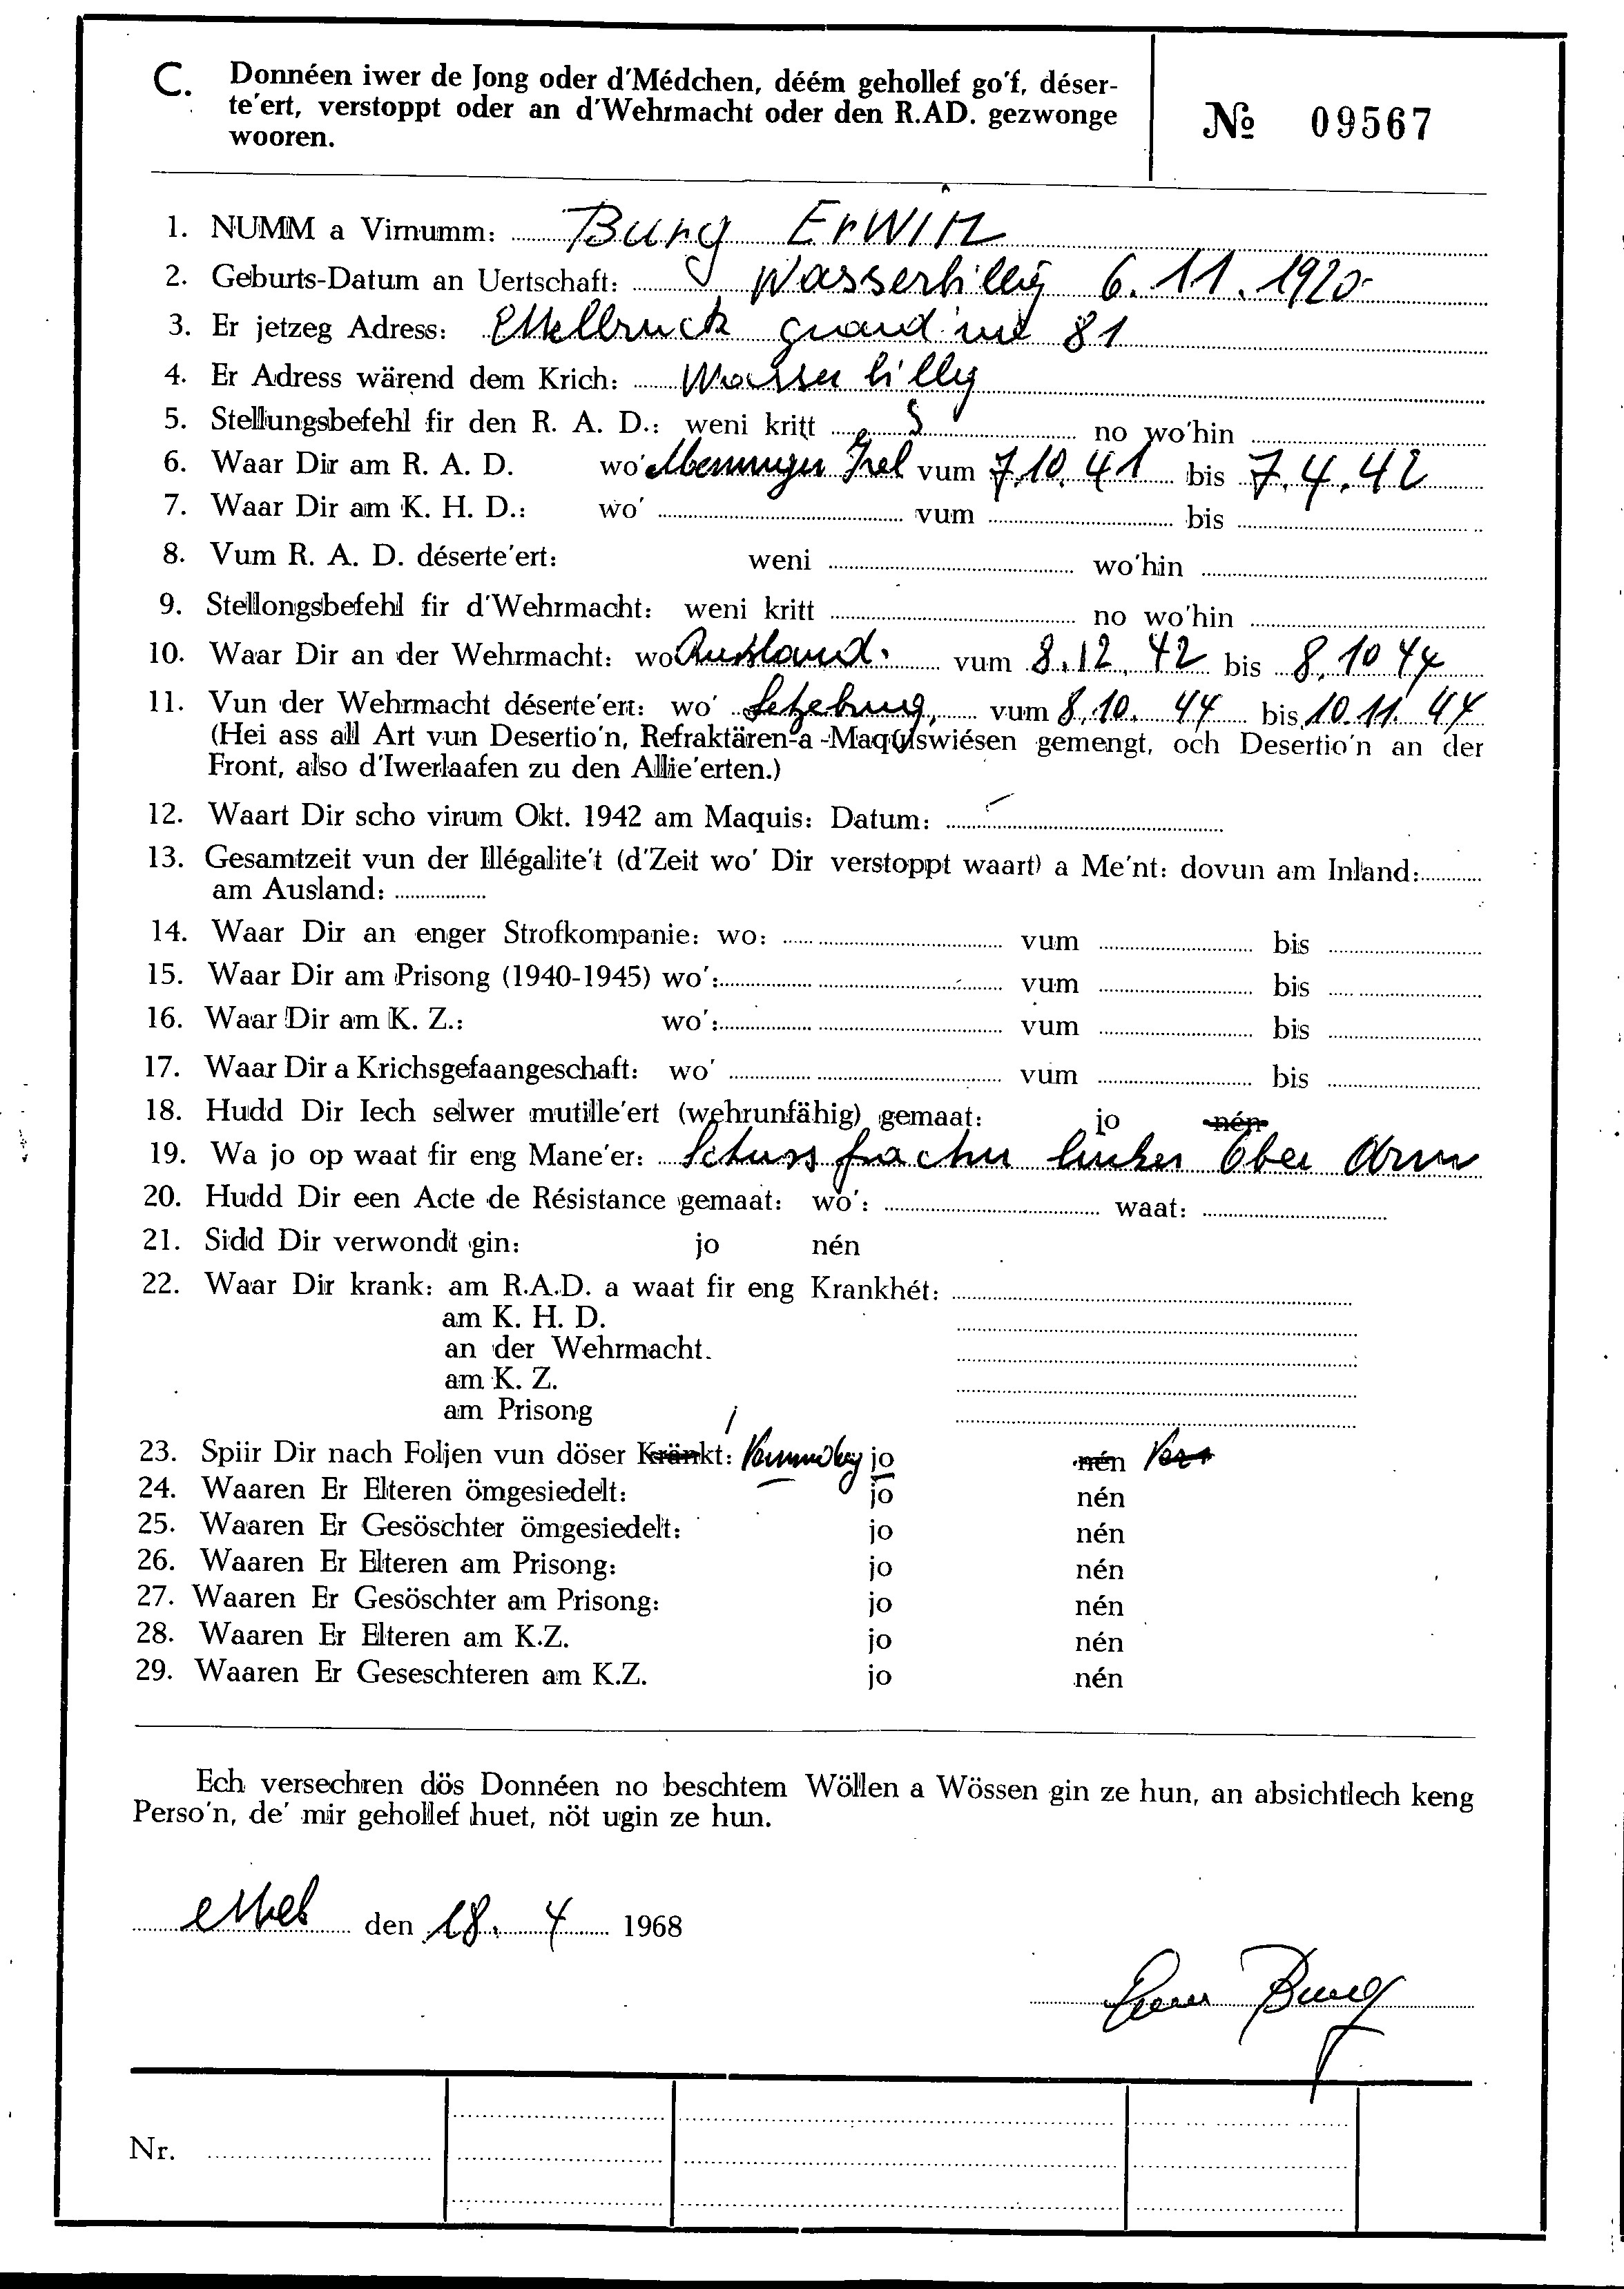 C. Donnéen iwer de Jong oder d'Médchen, déém gehollef go'f, déser-
te'ert, verstoppt oder an d'Wehrmacht oder den R.AD. gezwonge
wooren.
№ 09567
1. NUMM a Virnumm: Burg Erwin
2. Geburts-Datum an Uertschaft: Wasserbillig 6.11.1920
3. Er jetzeg Adress: Ettelbruck grand'rue 81
4. Er Adress wärend dem Krich: Wasserbillig
5. Stellungsbefehl fir den R. A. D.: weni kritt no wo'hin
6. Waar Dir am R. A. D. wo' vum 7.10.41 bis 7.4.42
7. Waar Dir am K. H. D.: wo' vum bis
8. Vum R. A. D. déserte'ert: weni wo'hin
9. Stellongsbefehl fir d'Wehrmacht: weni kritt no wo'hin
10. Waar Dir an der Wehrmacht: wo Russland. vum 8.12.42 bis 8.10 44
11. Vun der Wehrmacht déserte'ert: wo' Letzeburg, vum 8.10. 44 bis 10.11. 44
(Hei ass all Art vun Desertio'n, Refraktären-a -Maquiswiésen gemengt, och Desertio'n an der
Front, also d'Iwerlaafen zu den Allie'erten.)
12. Waart Dir scho virum Okt. 1942 am Maquis: Datum: -
13. Gesamtzeit vun der Illégalite't (d'Zeit wo' Dir verstoppt waart) a Me'nt: dovun am Inland:
am Ausland:
14. Waar Dir an enger Strofkompanie: wo: vum bis
15. Waar Dir am Prisong (1940-1945) wo': vum bis
16. Waar Dir am K. Z.: wo': vum bis
17. Waar Dir a Krichsgefaangeschaft: wo' vum bis
18. Hudd Dir Iech selwer mutille'ert (wehrunfähig) gemaat: jo nén
19. Wa jo op waat fir eng Mane'er: Schuss linker Ober Arm
20. Hudd Dir een Acte de Résistance gemaat: wo': waat:
21. Sidd Dir verwondt gin: jo nén
22. Waar Dir krank: am R.A.D. a waat fir eng Krankhét:
am K. H. D.
an der Wehrmacht.
am K. Z.
am Prisong
23. Spiir Dir nach Foljen vun döser Kränkt: jo nén
24. Waaren Er Elteren ömgesiedelt: jo nén
25. Waaren Er Gesöschter ömgesiedelt: jo nén
26. Waaren Er Elteren am Prisong: jo nén
27. Waaren Er Gesöschter am Prisong: jo nén
28. Waaren Er Elteren am K.Z. jo nén
29. Waaren Er Geseschteren am K.Z. jo nén
Ech versechren dös Donnéen no beschtem Wöllen a Wössen gin ze hun, an absichtlech keng
Perso'n, de' mir gehollef huet, nöt ugin ze hun.
den 18. 4 1968
Burg
Nr.